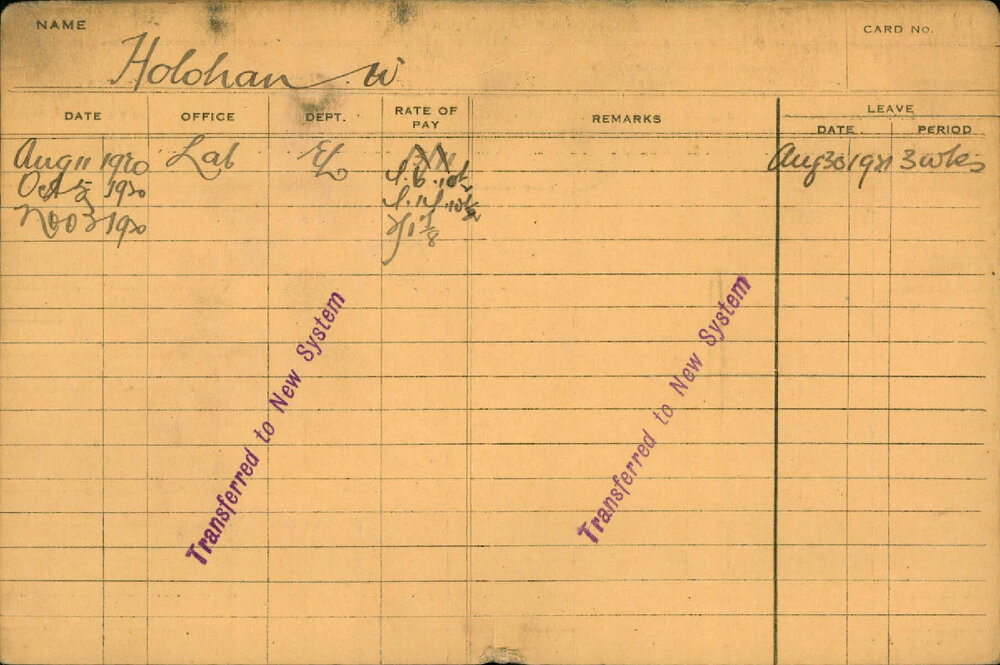 NAME
CARD NO.
Holohan W
DATE OFFICE DEPT. RATE OF PAY REMARKS LEAVE
DATE. PERIOD
Aug 11 1920 Lab Aug 30 1921 3 wks
Oct 5 1920
Nov 3 1920
Transferred to New System
Transferred to New System